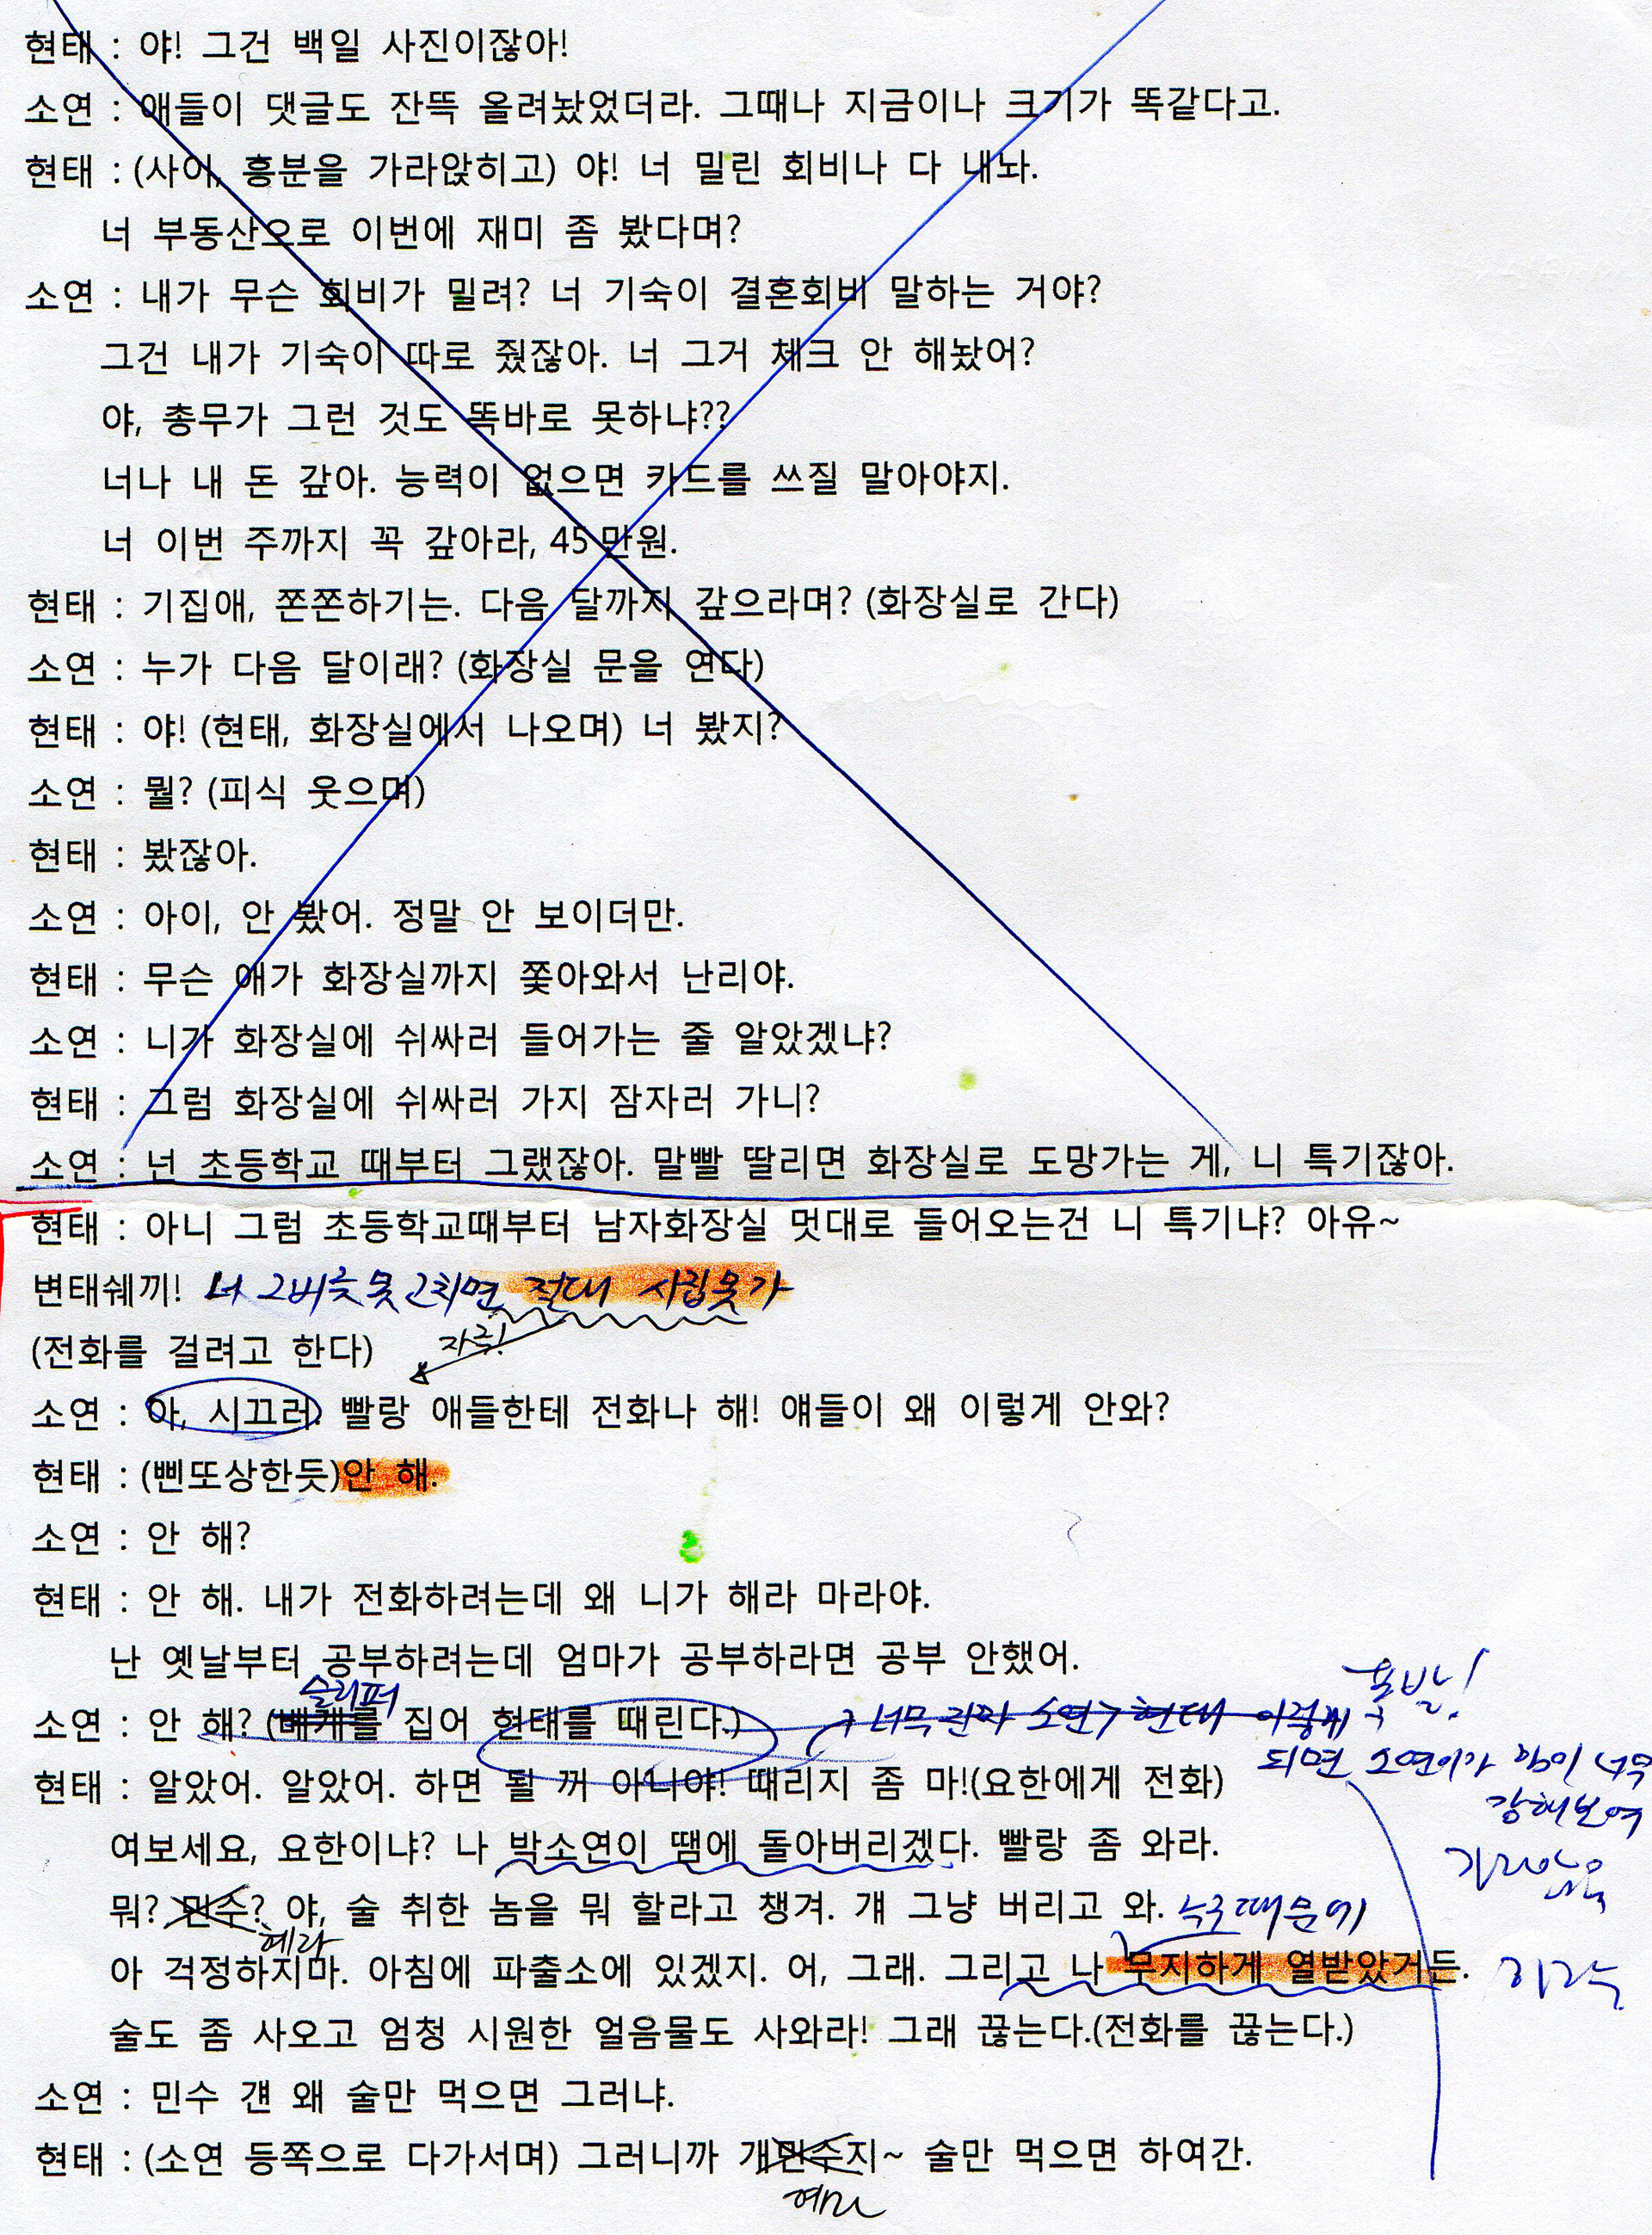 현태 : 야! 그건 백일 사진이잖아!
소연 : 애들이 댓글도 잔뜩 올려놨었더라. 그때나 지금이나 크기가 똑같다고.
현태 : (사이, 흥분을 가라앉히고) 야! 너 밀린 회비나 다 내놔.
너 부동산으로 이번에 재미 좀 봤다며?
소연 : 내가 무슨 회비가 밀려? 너 기숙이 결혼회비 말하는 거야?
그건 내가 기숙이 따로 줬잖아. 너 그거 체크 안 해놨어?
야, 총무가 그런 것도 똑바로 못하냐??
너나 내 돈 갚아. 능력이 없으면 카드를 쓰질 말아야지.
너 이번 주까지 꼭 갚아라, 45만원.
현태 : 기집애, 쫀쫀하기는. 다음 달까지 갚으라며? (화장실로 간다)
소연 : 누가 다음 달이래? (화장실 문을 연다)
현태 : 야! (현태, 화장실에서 나오며) 너 봤지?
소연 : 뭘? (피식 웃으며)
현태 : 봤잖아.
소연 : 아이, 안 봤어. 정말 안 보이더만.
현태 : 무슨 애가 화장실까지 쫓아와서 난리야.
소연 : 니가 화장실에 쉬싸러 들어가는 줄 알았겠냐?
현태 : 그럼 화장실에 쉬싸러 가지 잠자러 가니?
소연 : 넌 초등학교 때부터 그랬잖아. 말빨 딸리면 화장실로 도망가는 게, 니 특기잖아.
현태 : 아니 그럼 초등학교때부터 남자화장실 멋대로 들어오는건 니 특기냐? 아유~
변태쉐끼! 너 그버릇 못 고치면 절대 시집못가
자극!
(전화를 걸려고 한다)
소연 : 아, 시끄러. 빨랑 애들한테 전화나 해! 얘들이 왜 이렇게 안와?
현태 : (삔또상한듯)안 해.
소연 : 안 해?
현태 : 안 해. 내가 전화하려는데 왜 니가 해라 마라야.
난 옛날부터 공부하려는데 엄마가 공부하라면 공부 안했어.
슬리퍼 폭발!
소연 : 안 해? (베개를 집어 현태를 때린다.) 너무 소연>현태 이렇게
되면 소연이가 너무
현태 : 알았어. 알았어. 하면 될 꺼 아니야! 때리지 좀 마!(요한에게 전화)
강해보여
여보세요, 요한이냐? 나 박소연이 땜에 돌아버리겠다. 빨랑 좀 와라.
뭐? 민수? 야, 술 취한 놈을 뭐 할라고 챙겨. 걔 그냥 버리고 와. 누구때문에
혜라
아 걱정하지마. 아침에 파출소에 있겠지. 어, 그래. 그리고 나 무지하게 열받았거든.
술도 좀 사오고 엄청 시원한 얼음물도 사와라! 그래 끊는다.(전화를 끊는다.)
소연 : 민수 걘 왜 술만 먹으면 그러냐.
현태 : (소연 등쪽으로 다가서며) 그러니까 개민수지~ 술만 먹으면 하여간.
혜라